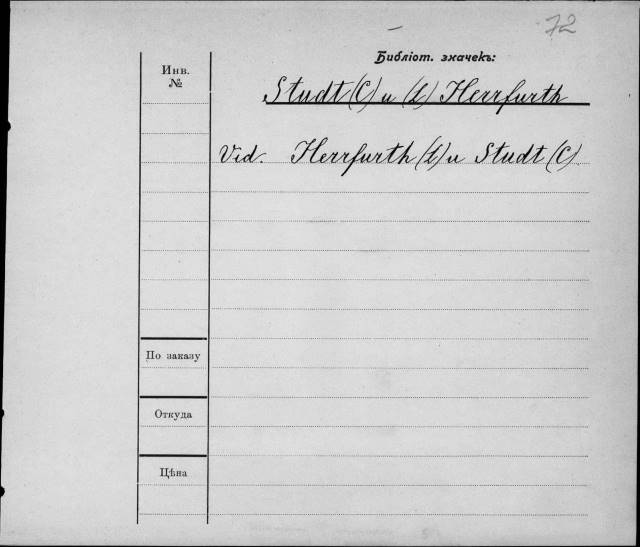 72
Библіот. значекъ:
Инв.
№
Studt (C) u (L) Herrfurth
Vid. Herrfurth (L) u Studt (C)
По заказу
Откуда
Цѣна